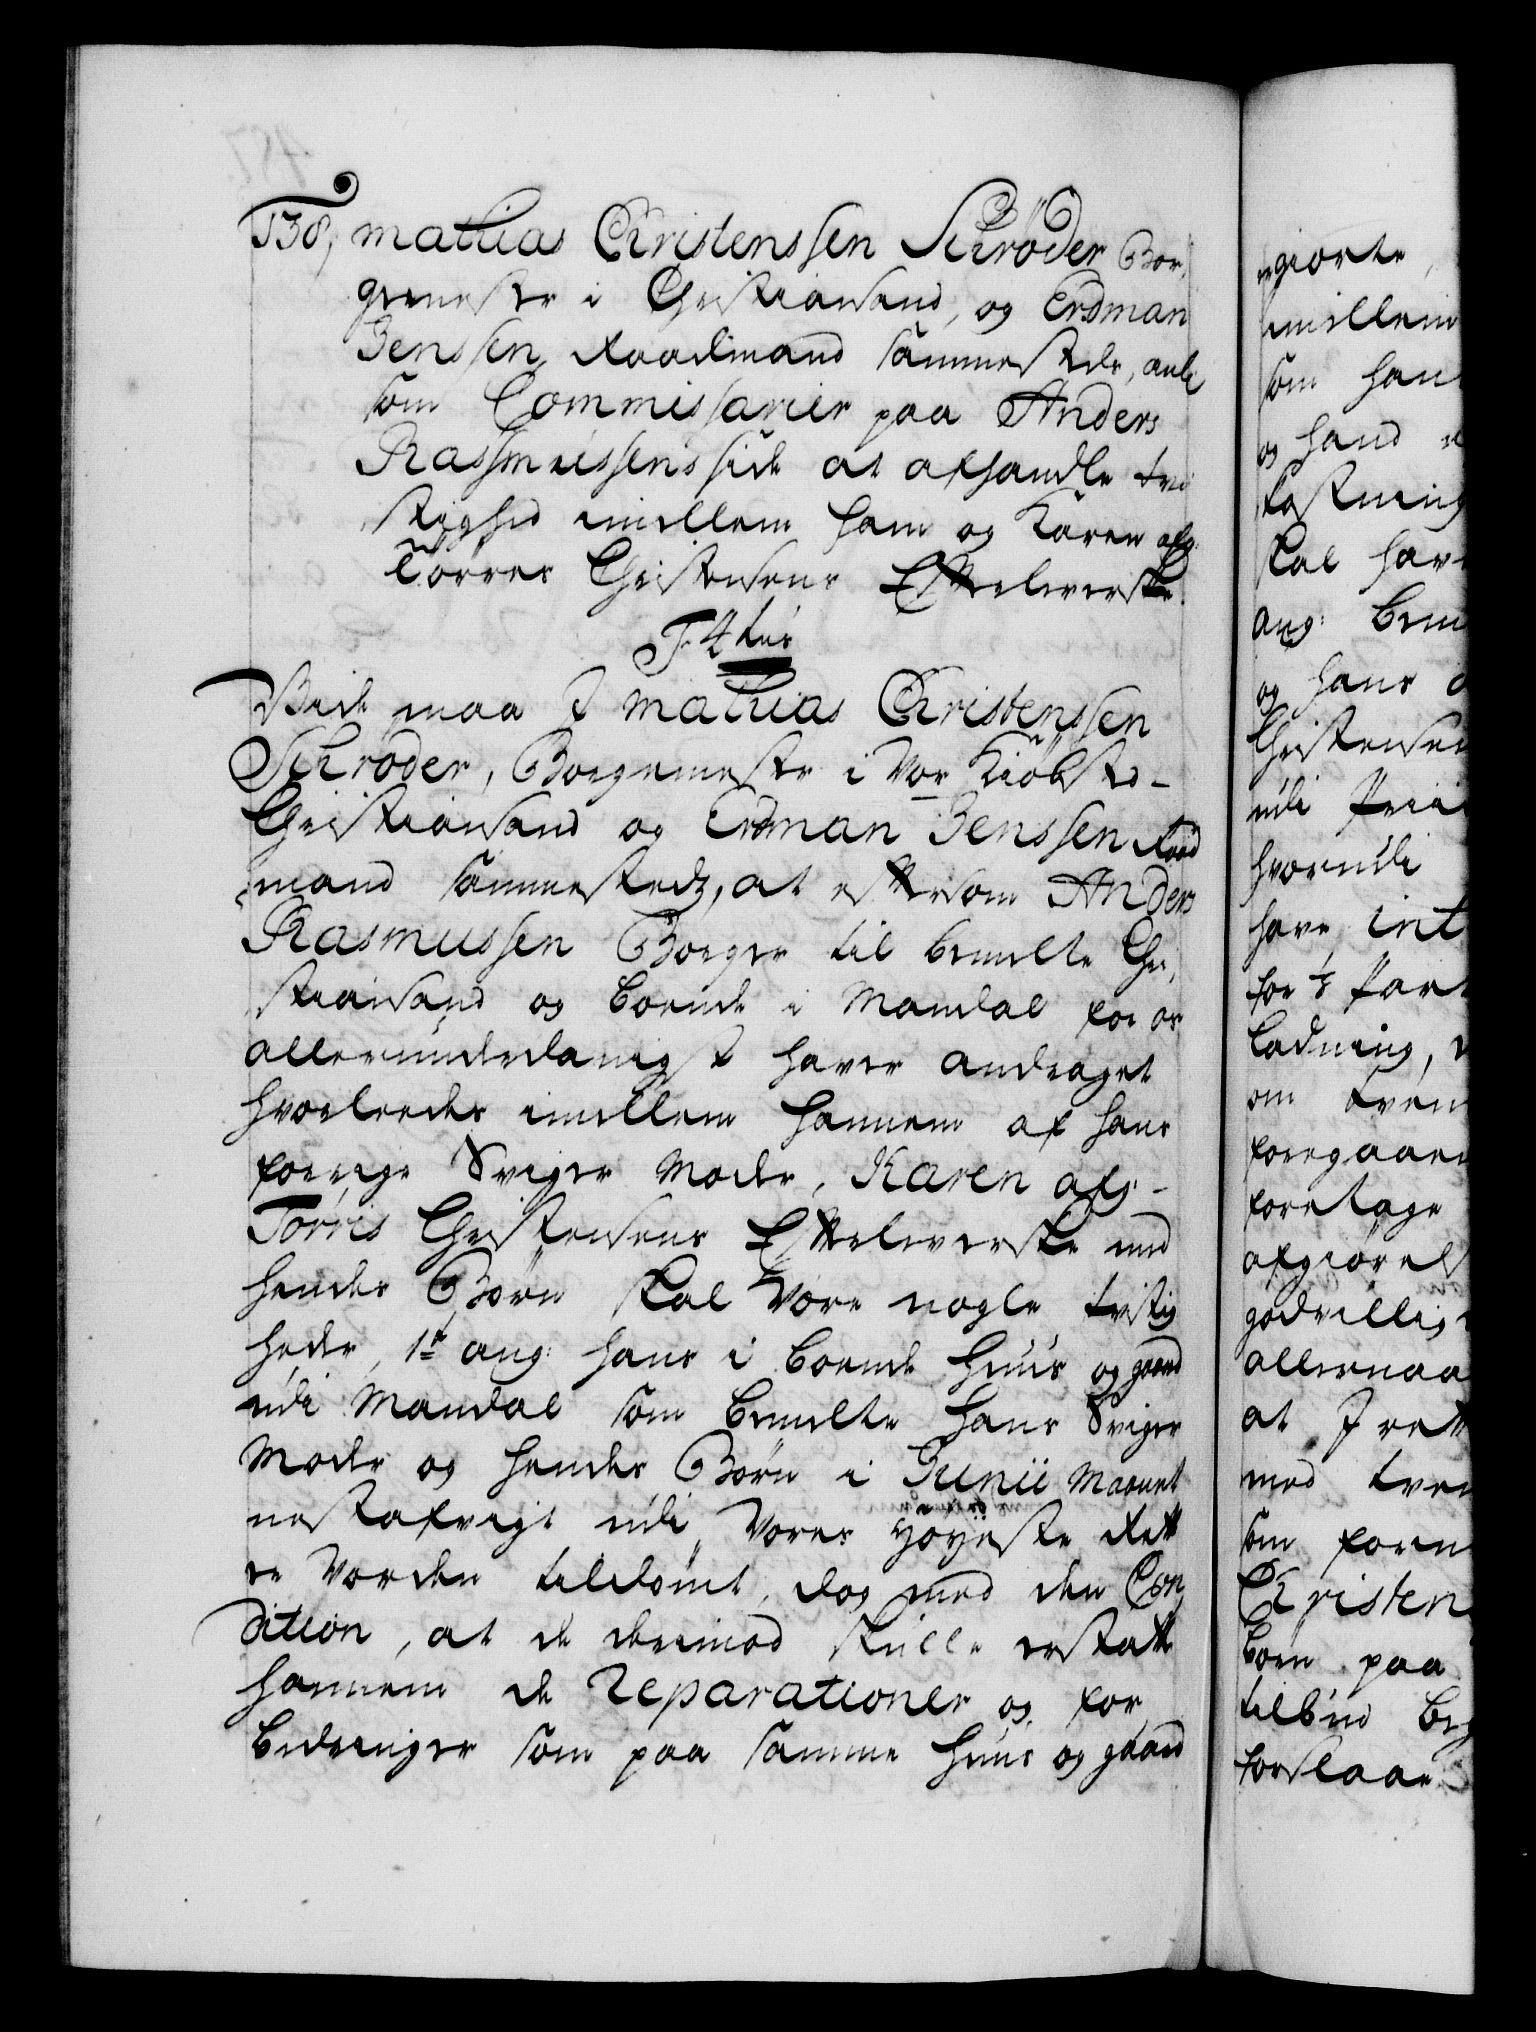 138, Mathias Christenssen Schrøder Bor,
gemester i Christiansand, og Erdman
Jenssen Raadmand sammestedz, anl.
som Commissarier paa Anders
Rassmussens side at afhandle tvi
stighed imellem ham og Karen afg.
Törres Christensens Efterleverske.
F. 4 tus
Vide maa I Mathias Christenssen
Schröder, Borgemester i Vor Kiöbsted
Christiansand og Erdman Jenssen Raad
mand sammestedz, at eftersom Anders
Rasmussen Borger til bemelte Chri,
stiansand og boende i Mandal for os
allerunderdanigst haver andraget
hvorledes imellem hannem af hans
forrige Sviger Moder, Karen afg.
Torris Christensens Efterleverske med
hendes Børn skal være nogle tvistig
heder, 1st ang: hans i boende Huus og gaard
udi Mandal som bemelte hans Sviger
Moder og hendes Børn i Junii Maanet
nestafvigt udi Vores Høyeste Rett
er vorden tildømt, dog med den Con
dition, at de derimod skulle erstatte
hannem de Reparationer og for
bedringer som paa samme Huus og gaard
giorte,
imellem
som han
og hand
fastning
skal hav
ang: bem
og hans
Christensen
udi
hvorudi
have, int
for 1/8 Part
ladning,
om tven
foregaaen
foretage
afgiørels
godvillig
allernaa
at I rett
med tven
som foren
Christen
børn paa
tilbud beg
forslaae